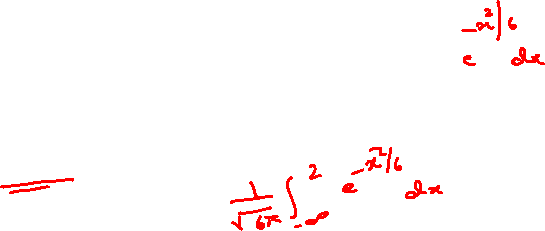 e^{-x^2/6} dx
\frac{1}{\sqrt{6\pi}} \int_{-\infty}^{2} e^{-x^2/6} dx